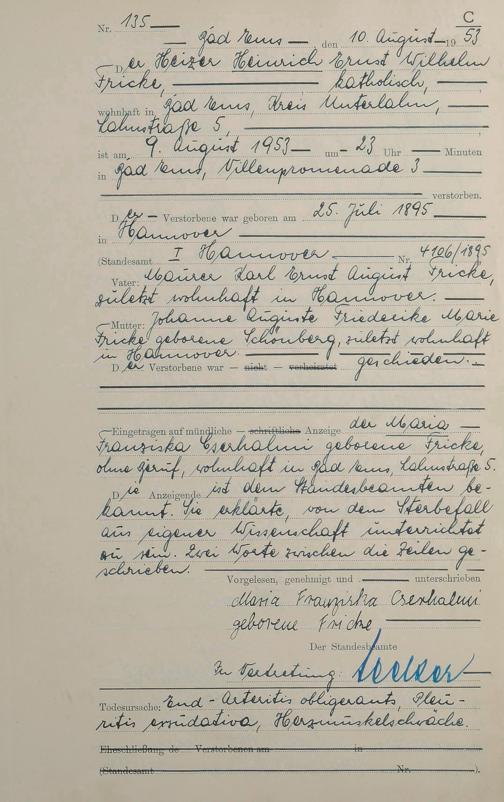 C
Nr. 135
Bad Ems den 10. August 1953
Der Heizer Heinrich Ernst Wilhelm
Fricke, katholisch,
wohnhaft in Bad Ems, Kreis Unterlahn,
Lahnstraße 5,
ist am 9. August 1953 um 23 Uhr Minuten
in Bad Ems, Villenpromenade 3
verstorben.
Der Verstorbene war geboren am 25. Juli 1895
in Hannover
(Standesamt I Hannover Nr. 4106/1895
Vater: Maurer Karl Ernst August Fricke,
zuletzt wohnhaft in Hannover.
Mutter: Johanne Auguste Friederike Marie
Fricke geborene Schönberg, zuletzt wohnhaft
in Hannover.
Der Verstorbene war — nicht — verheiratet geschieden.
Eingetragen auf mündliche — schriftliche Anzeige der Maria
Franziska Cserhalmi geborene Fricke,
ohne Beruf, wohnhaft in Bad Ems, Lahnstraße 5.
Die Anzeigende ist dem Standesbeamten be-
kannt. Sie erklärte, von dem Sterbefall
aus eigener Wissenschaft unterrichtet
zu sein. Zwei Worte zwischen die Zeilen ge-
schrieben.
Vorgelesen, genehmigt und unterschrieben
Maria Franziska Cserhalmi
geborene Fricke
Der Standesbeamte
In Vertretung:
Todesursache: End-Arteritis obligerants, Pleu-
ritis exsudativa, Herzmuskelschwäche.
Eheschließung de Verstorbenen am in
(Standesamt Nr. ).